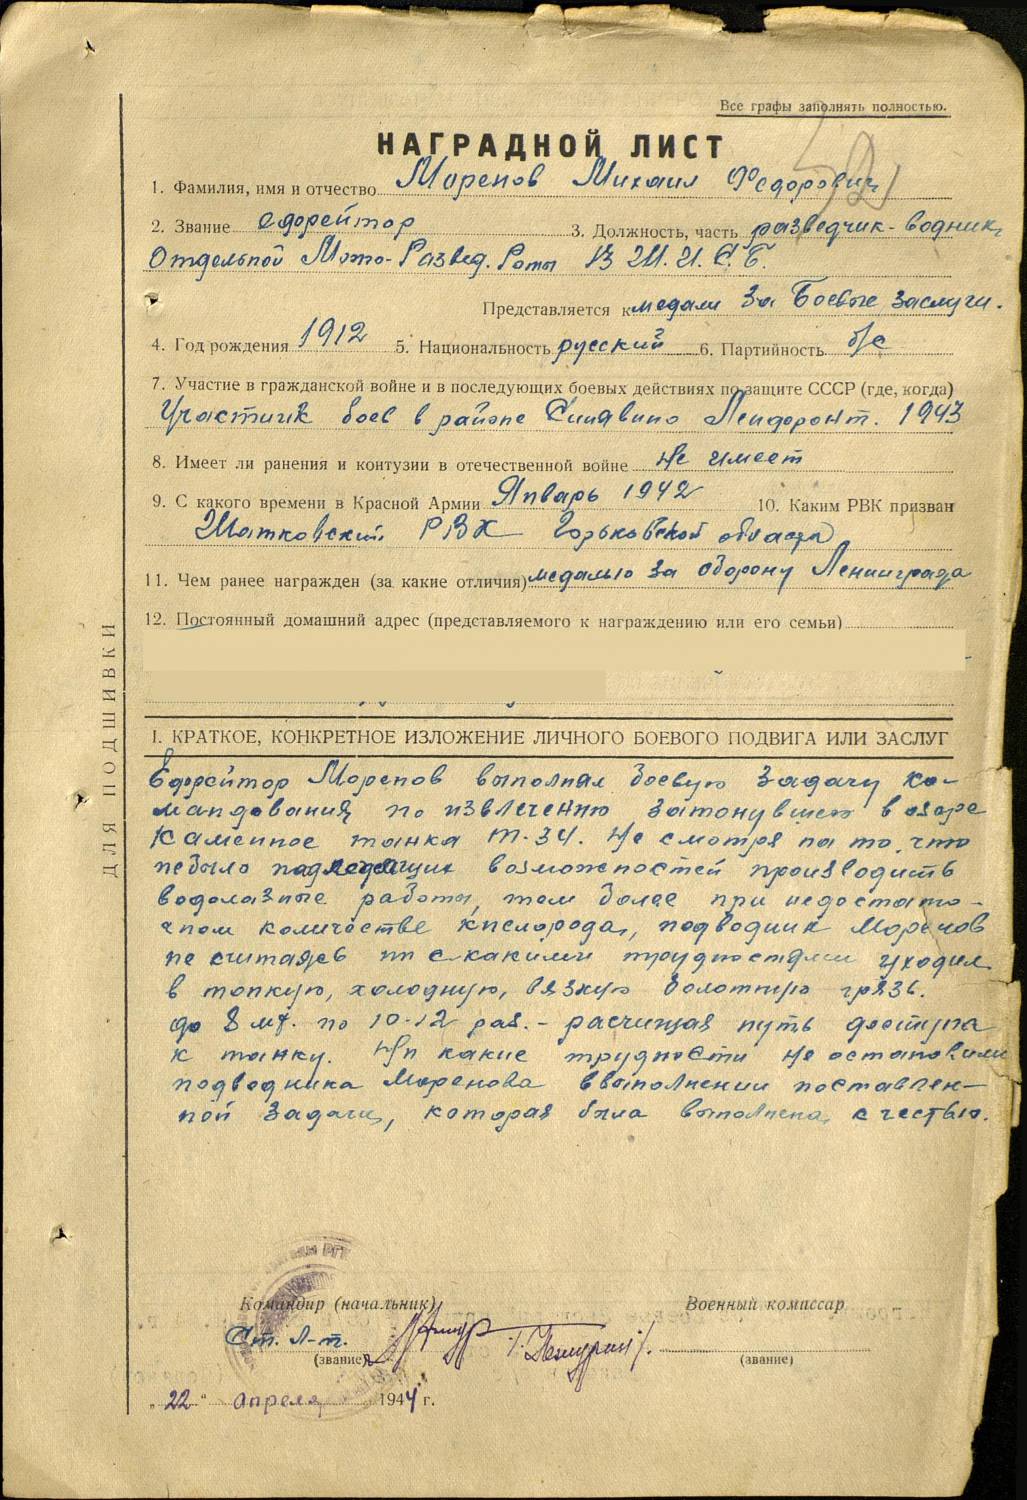 Все графы заполнять полностью.
НАГРАДНОЙ ЛИСТ
1. Фамилия, имя и отчество Моренов Михаил Федорович
2. Звание ефрейтор 3. Должность, часть разведчик-водник
Отдельной Мото-Развед. Роты 13 Ш.И.С.Б.
Представляется к медали За Боевые заслуги.
4. Год рождения 1912 5. Национальность русский 6. Партийность б/с
7. Участие в гражданской войне и в последующих боевых действиях по защите СССР (где, когда)
Участник боев в районе Синявино Ленфронт. 1943
8. Имеет ли ранения и контузии в отечественной войне Не имеет
9. С какого времени в Красной Армии Январь 1942 10. Каким РВК призван
Шатковский РВК Горьковской области
11. Чем ранее награжден (за какие отличия) медалью за оборону Ленинграда
12. Постоянный домашний адрес (представляемого к награждению или его семьи)
ДЛЯ ПОДШИВКИ
I. КРАТКОЕ, КОНКРЕТНОЕ ИЗЛОЖЕНИЕ ЛИЧНОГО БОЕВОГО ПОДВИГА ИЛИ ЗАСЛУГ
Ефрейтор Моренов выполнял боевую задачу ко-
мандования по извлечению затонувшего в озере
Каменное танка Т-34. Не смотря на то, что
небыло подлежащих возможностей производить
водолазные работы, тем более при недостато-
чном количестве кислорода, подводник Моренов
не считаясь ни с какими трудностями уходил
в топкую, холодную, вязкую болотную грязь.
до 8 мт. по 10-12 раз. - расчищая путь доступа
к танку. Ни какие трудности не остановили
подводника Моренова ввыполнении поставлен-
ной задачи, которая была выполнена с честью.
Командир (начальник) Военный комиссар
Ст. Л-т.
(звание) (звание)
„22“ апреля 1944 г.